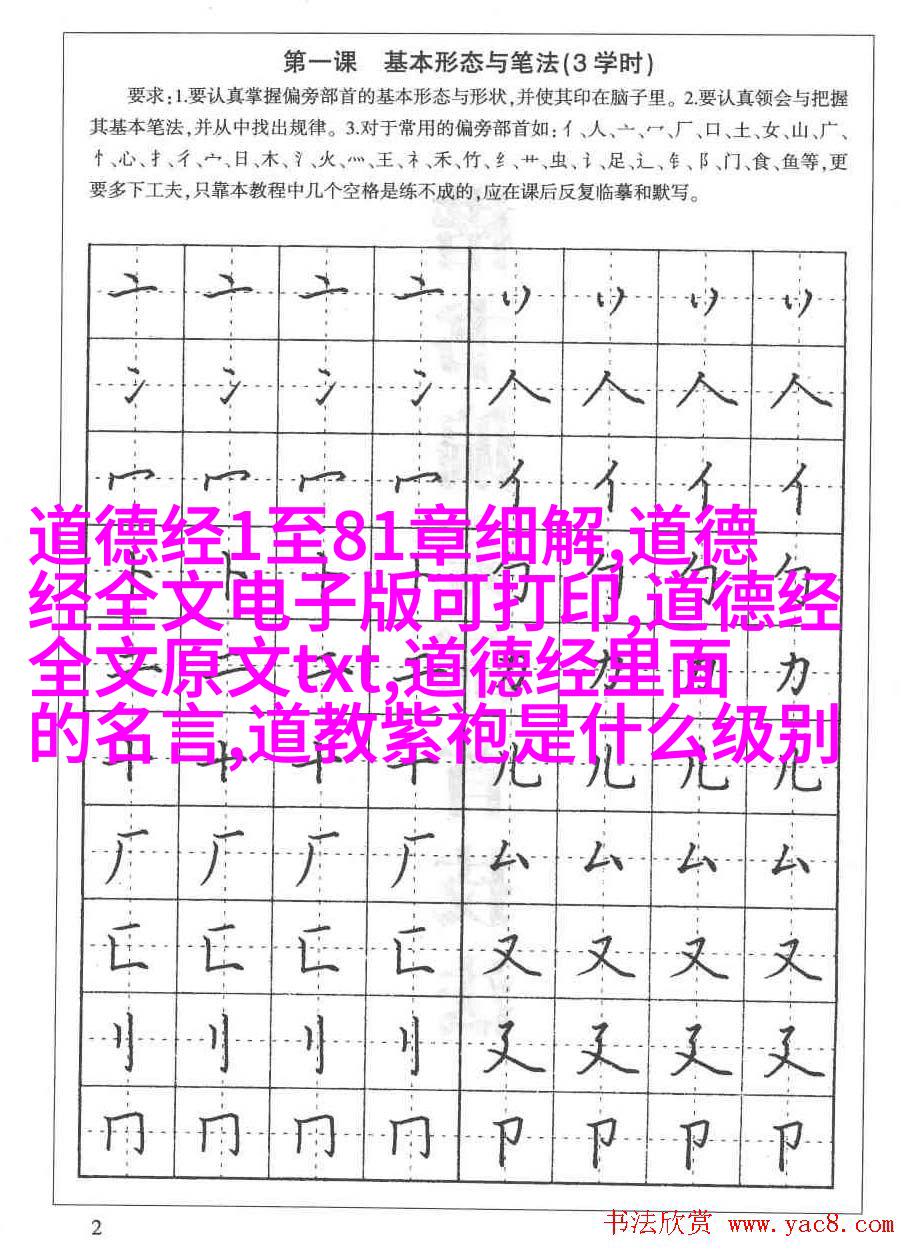 第一课 基本形态与笔法(3学时)
要求:1.要认真掌握偏旁部首的基本形态与形状,并使其印在脑子里。2.要认真领会与把握
其基本笔法,并从中找出规律。3.对于常用的偏旁部首如:亻、人、亠、冖、厂、口、土、女、山、广、
忄、心、扌、彳、宀、日、木、氵、火、灬、王、礻、禾、竹、纟、艹、虫、讠、足、辶、钅、阝、门、食、鱼等,更
要多下工夫,只靠本教程中几个空格是练不成的,应在课后反复临摹和默写。
亠 亠 亠 亠 丷 丷 丷 丷
冫 冫 冫 冫 人 人 人 人
冖 冖 冖 冖 亻 亻 亻 亻
道德经1至81章细解,道德
经全文电子版可打印,道德经
全文原文txt,道德经里面
的名言,道教紫袍是什么级别
力 力
儿 儿 儿 儿
厂 厂 厂 厂 厶 厶 厶 厶
匚 匚 匚 匚 又 又 又 又
刂 刂 刂 刂 廴 廴 廴 廴
冂 冂 冂 冂 卩 卩 卩 卩
2
书法欣赏 www.yac8.com